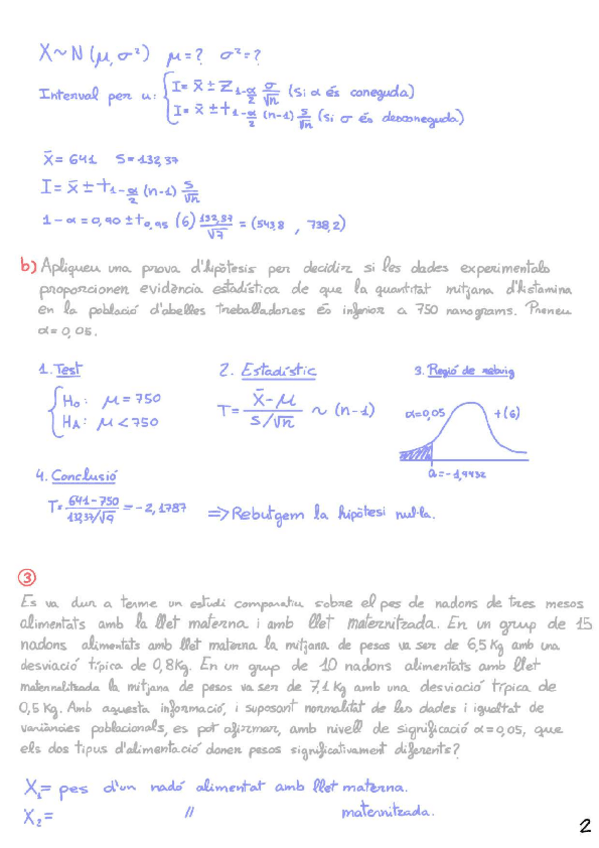 X ~ N(μ, σ²)   μ = ?   σ² = ?
Interval per u: { I = x̄ ± Z₁₋α/₂ σ/√n (si α és coneguda)
I = x̄ ± t₁₋α/₂ (n-1) s/√n (si σ és desconeguda)
x̄ = 641   S = 132,37
I = x̄ ± t₁₋α/₂ (n-1) s/√n
1-α = 0,90 ± t₀,₉₅ (6) 132,37/√7 = (543,8 , 738,2)
b) Apliqueu una prova d'hipòtesis per decidir si les dades experimentals
proporcionen evidència estadística de que la quantitat mitjana d'histamina
en la població d'abelles treballadores és inferior a 750 nanograms. Preneu
α = 0,05.
1. Test   2. Estadístic   3. Regió de rebuig
{ H₀: μ = 750   T = (x̄ - μ)/(S/√n) ~ (n-1)   α=0,05   t(6)
HA: μ < 750
a = -1,9432
4. Conclusió
T = (641-750)/(132,37/√7) = -2,1787   ⇒ Rebutgem la hipòtesi nul·la.
3
Es va dur a terme un estudi comparatiu sobre el pes de nadons de tres mesos
alimentats amb la llet materna i amb llet maternitzada. En un grup de 15
nadons alimentats amb llet materna la mitjana de pesos va ser de 6,5 Kg amb una
desviació típica de 0,8Kg. En un grup de 10 nadons alimentats amb llet
maternalitzada la mitjana de pesos va ser de 7,1 Kg amb una desviació típica de
0,5 Kg. Amb aquesta informació, i suposant normalitat de les dades i igualtat de
variàncies poblacionals, es pot afirmar, amb nivell de significació α = 0,05, que
els dos tipus d'alimentació donen pesos significativament diferents?
X₁ = pes d'un nadó alimentat amb llet materna.
X₂ =   //   maternitzada.
2